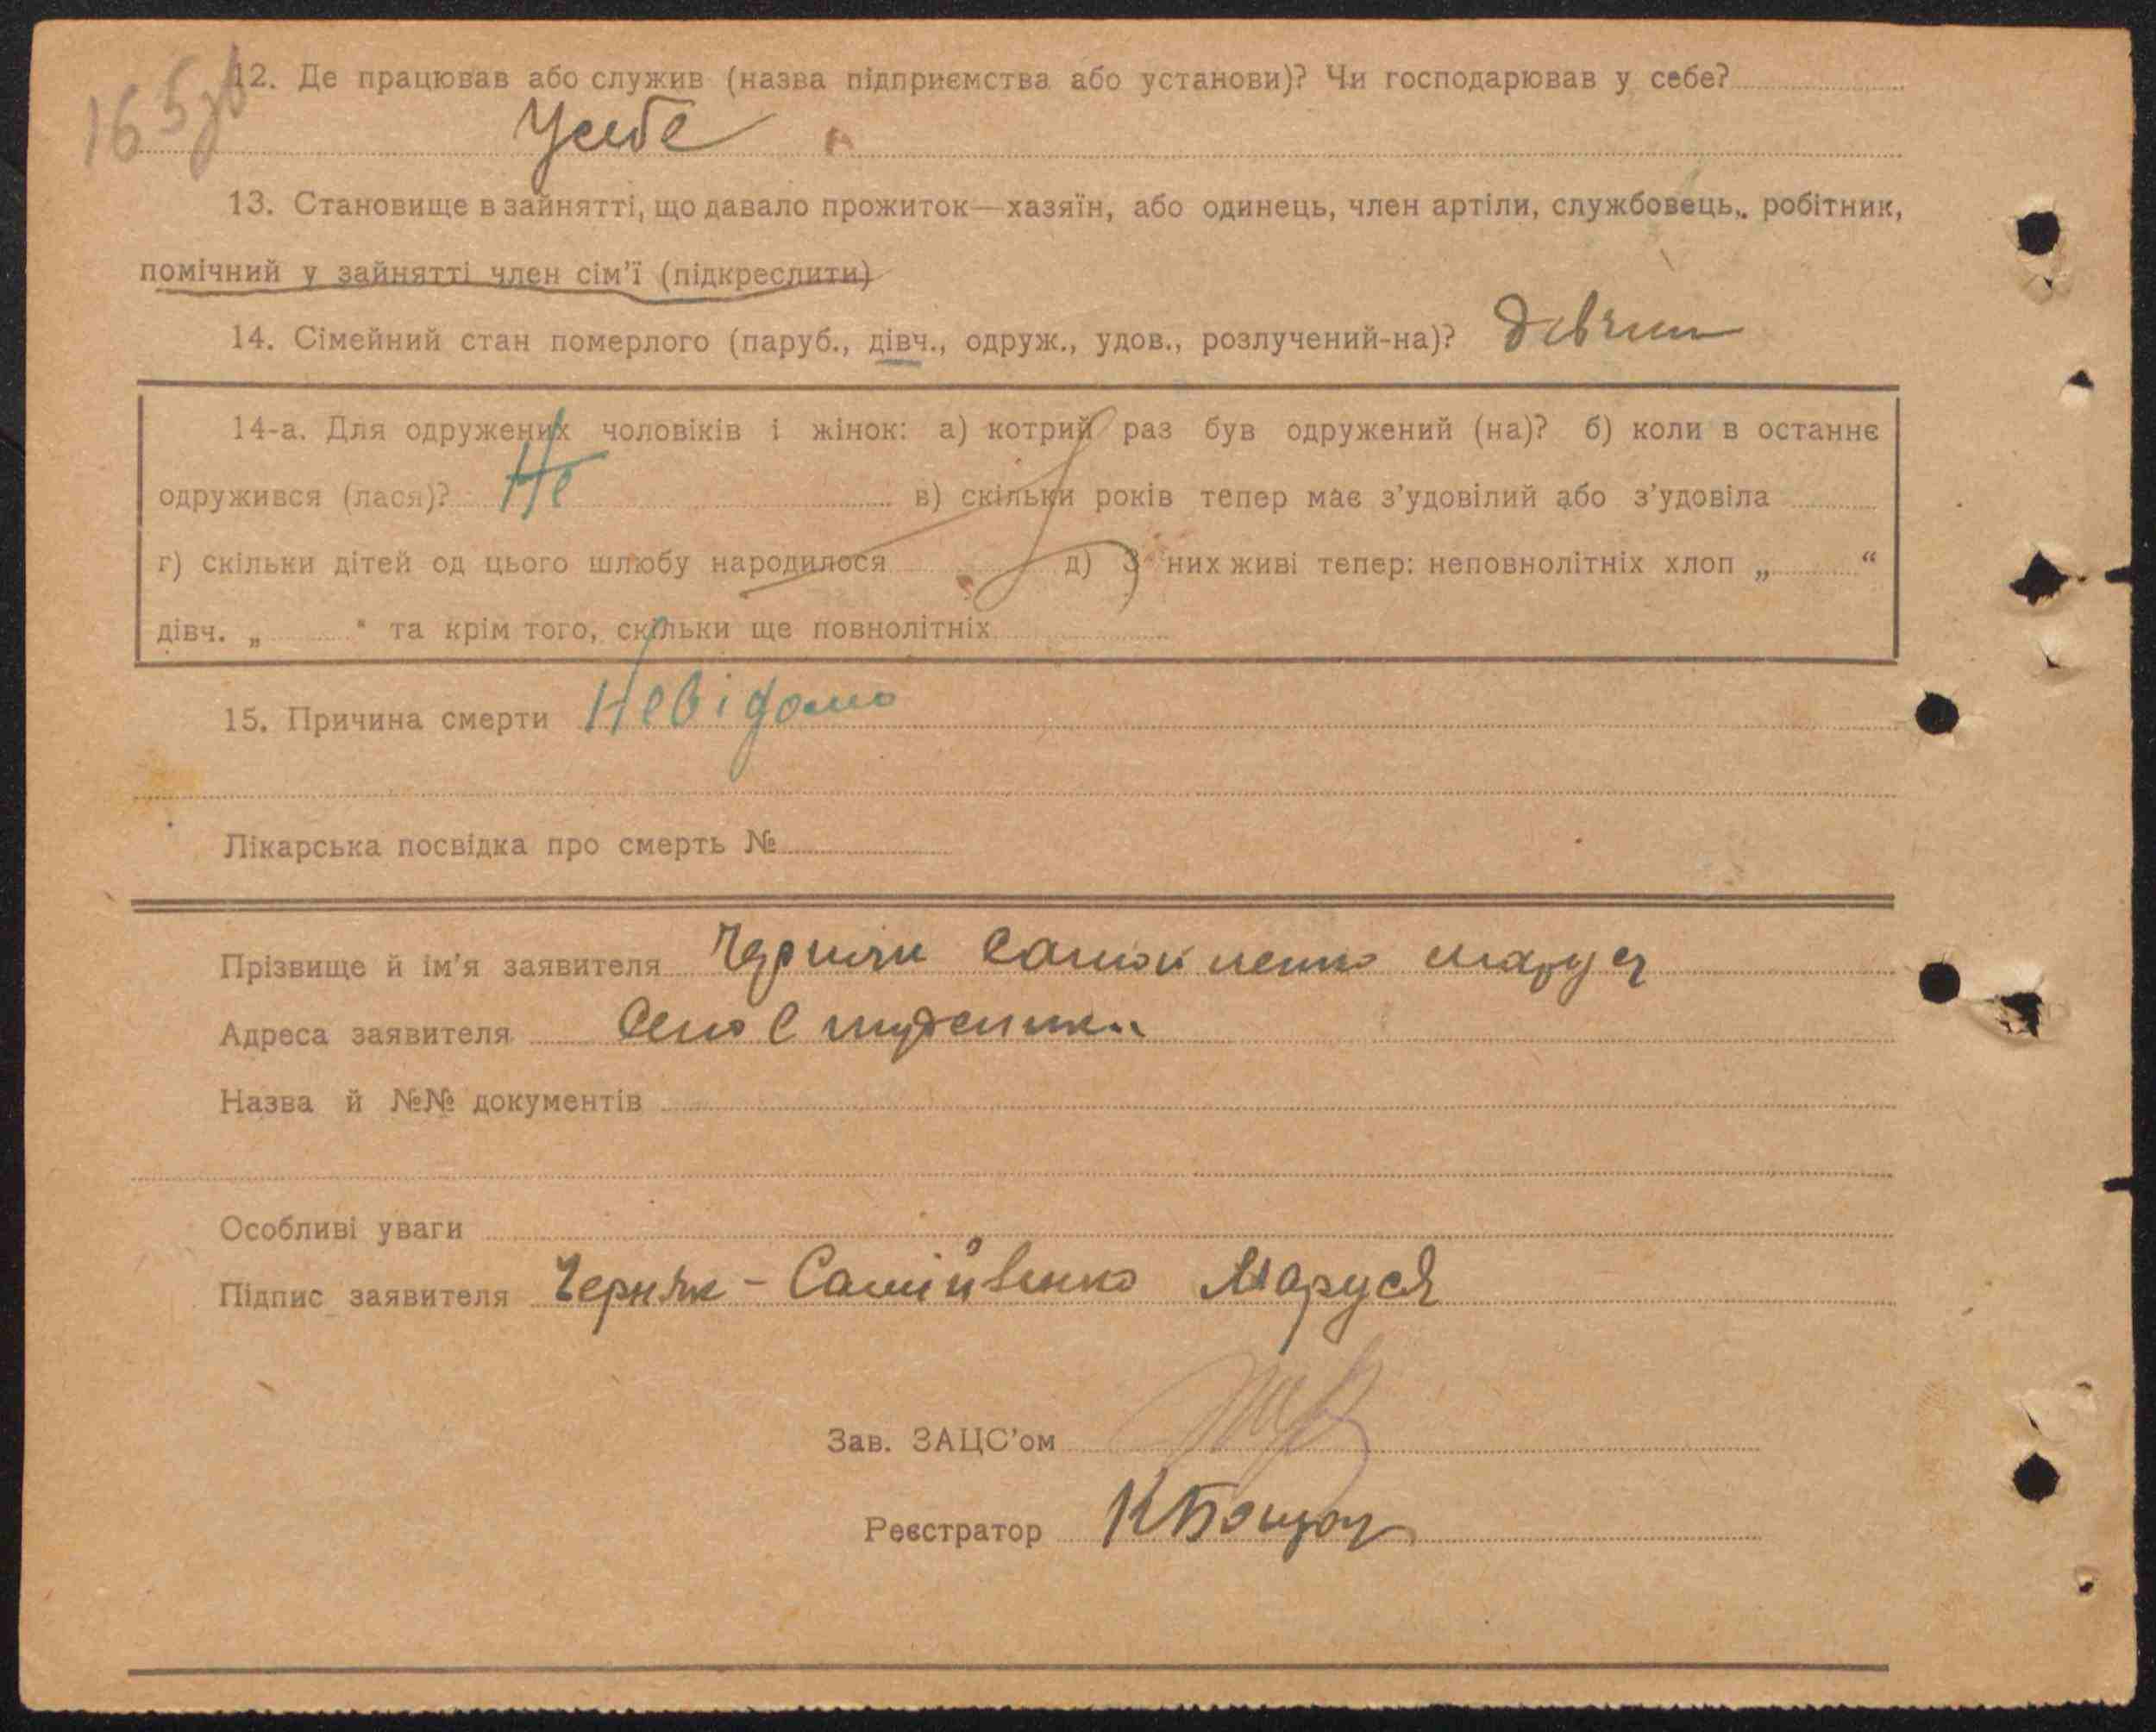 165зв
12. Де працював або служив (назва підприємства або установи)? Чи господарював у себе?
У себе
13. Становище в зайнятті, що давало прожиток—хазяїн, або одинець, член артіли, службовець, робітник,
помічний у зайнятті член сім'ї (підкреслити)
14. Сімейний стан померлого (паруб., дівч., одруж., удов., розлучений-на)? дівчина
14-а. Для одружених чоловіків і жінок: а) котрий раз був одружений (на)? б) коли в останнє
одружився (лася)? Не в) скільки років тепер має з'удовілий або з'удовіла
г) скільки дітей од цього шлюбу народилося д) З них живі тепер: неповнолітніх хлоп „ “
дівч. „ “ та крім того, скільки ще повнолітніх
15. Причина смерти Невідомо
Лікарська посвідка про смерть №
Прізвище й ім'я заявителя Маруся
Адреса заявителя Село
Назва й №№ документів
Особливі уваги
Підпис заявителя Черняк - Самійленко Маруся
Зав. ЗАЦС'ом
Реєстратор